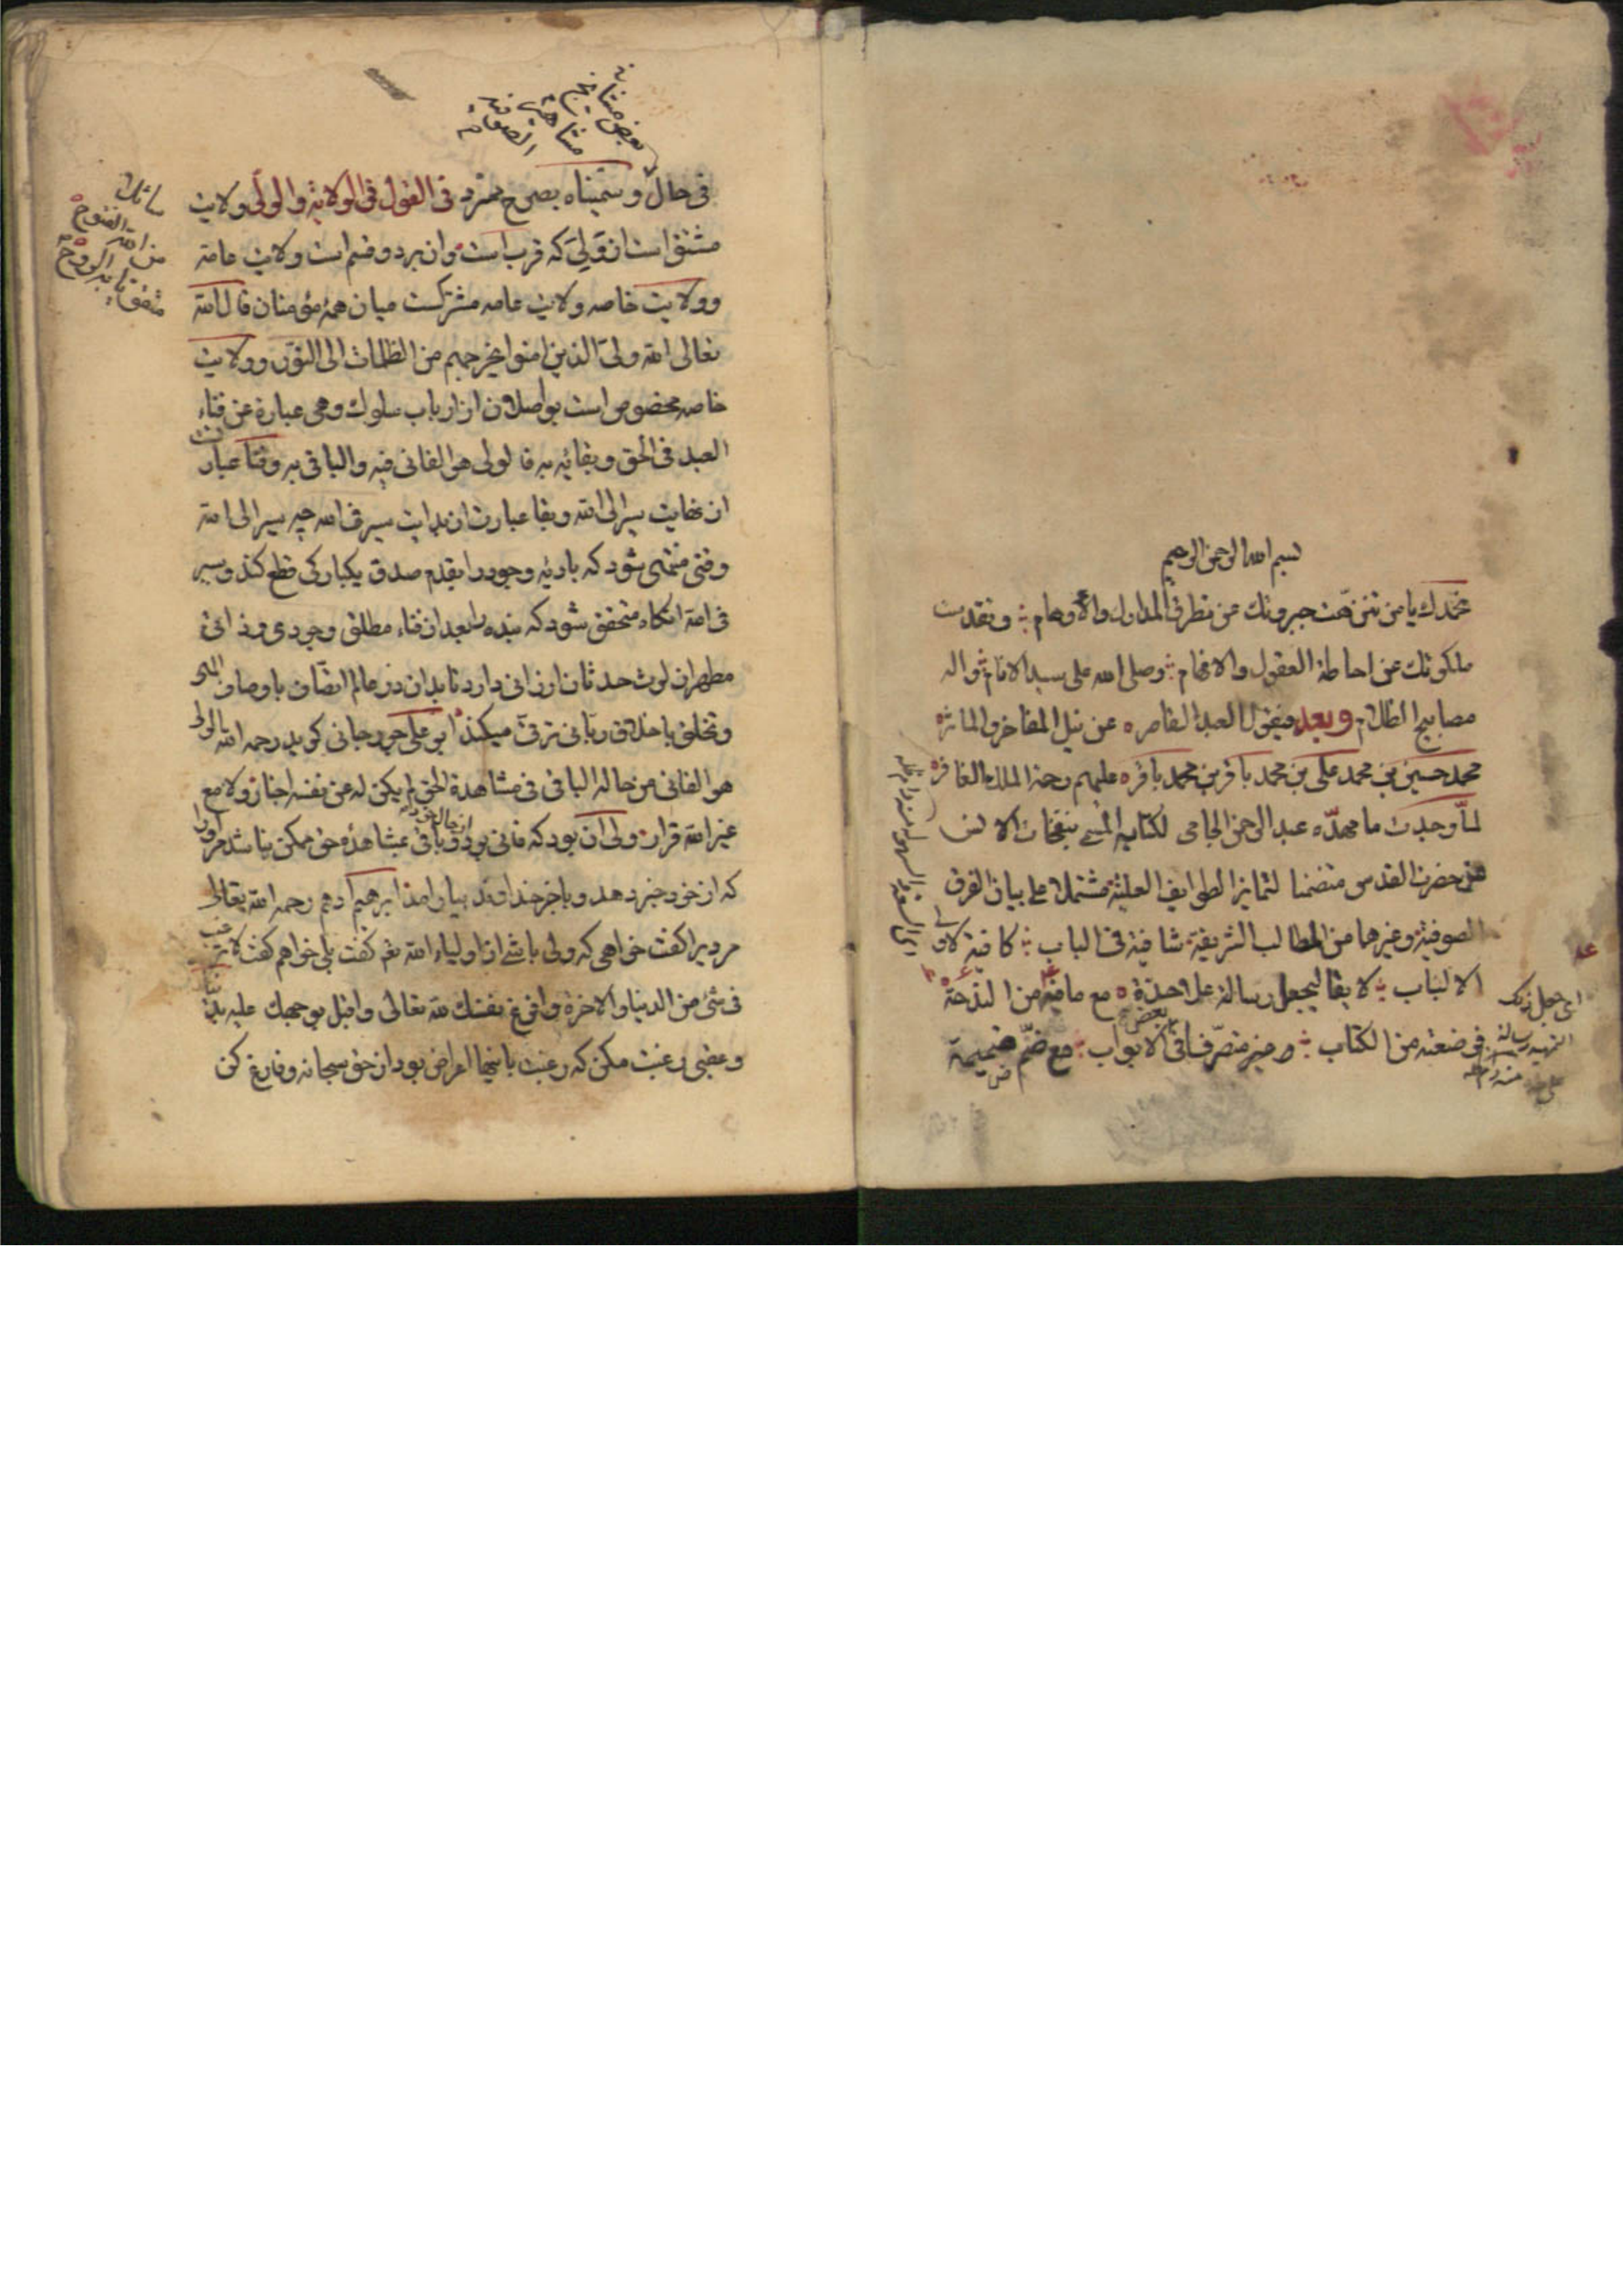 بسم الله الرحمن الرحيم
نحمدك يا من تنزهت جبروتك عن تطرق المدارك والأوهام و تقدست
ملكوتك عن احاطة العقول والافهام وصلى الله على سيد الانام واله
مصابيح الظلام وبعد فيقول العبد القاصر عن نيل المفاخر والماثر
محمد حسين بن محمد على بن محمد باقر بن محمد باقر عليهم رحمة الملك الغافر
لما وجدت ما مهده عبد الرحمن الجامى لكتابه المسمى بنفحات الانس
من حضرات القدس متضمنا لتمايز الطوايف العلية مشتملا على بيان الفرق
الصوفية وغيرها من المطالب الشريفة شافية فى الباب كافية لاولى
الالباب لايقا ليجعل رسالة على حدة مع ما فيه من
فى ضعته من الكتاب متصرفا فى بعض الابواب مع ضم ضميمة
اى جعل ذلك
رسالة
منه
فى حال وسميناه بصرح ممرد فى القول فى الولاية والولى ولايت
مشتق است از ولى كه قرب است وان بر دو قسم است ولايت عامه
وولايت خاصه ولايت عامه مشتركست ميان همه مؤمنان قال الله
تعالى الله ولى الذين امنوا يخرجهم من الظلمات الى النور وولايت
خاصه مخصوص است بواصلان از ارباب سلوك وهى عبارة عن فناء
العبد فى الحق وبقائه به فالولى هو الفانى فيه والباقى به وفنا عبارت
از نهايت سير الى الله وبقا عبارت از بدايت سير فى الله چه سير الى الله
وقتى منتهى شود كه باديه وجود را بقدم صدق يكبارگى قطع كند وسير
فى الله انگاه متحقق شود كه بنده را بعد از فناء مطلق وجودى وذاتى
مطهر از لوث حدثان ارزانى دارد تا بدان در عالم اتصاف باوصاف الهى
وتخلق باخلاق ربانى ترقى ميكند ابو على جورجانى گويد رحمه الله الولى
هو الفانى من حاله الباقى فى مشاهدة الحق لم يكن له عن نفسه اخبار ولا مع
غير الله قرار ولى ان بود كه فانى بود از حال خود و باقى بمشاهده حق ممكن نباشد مر او را
كه از خود خبر دهد و با جز خداوند بيارامد ابرهيم ادهم رحمه الله تعالى
مرديرا گفت خواهى كه ولى باشى از اولياء الله نعم گفت بلى خواهم گفت لا ترغب
فى شئ من الدنيا والاخرة وافرغ نفسك لله تعالى واقبل بوجهك عليه بدنيا
وعقبى رغبت مكن كه رغبت باينها اعراض بود از حق سبحانه وفارغ كن
بعض
الصوفية
من الله الفتوح